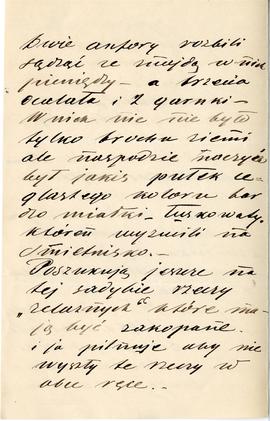 Dwie amfory rozbili
sądząc że znajdą w nich
pieniądze - a trzecia
ocalała i 2 garnki -
W nich nic nie było
tylko trocha ziemi
ale na spodzie naczyń
był jakiś pułek ce-
glastego koloru bar
dzo miałki - łuskowaty
którą wyrzucili na
śmietnisko. -
Poszukują jeszcze na
tej sadybie rzeczy
"żelaznych" które ma-
ją być zakopane.
i ja pilnuje aby nie
wyszły te rzeczy w
obce ręce. -